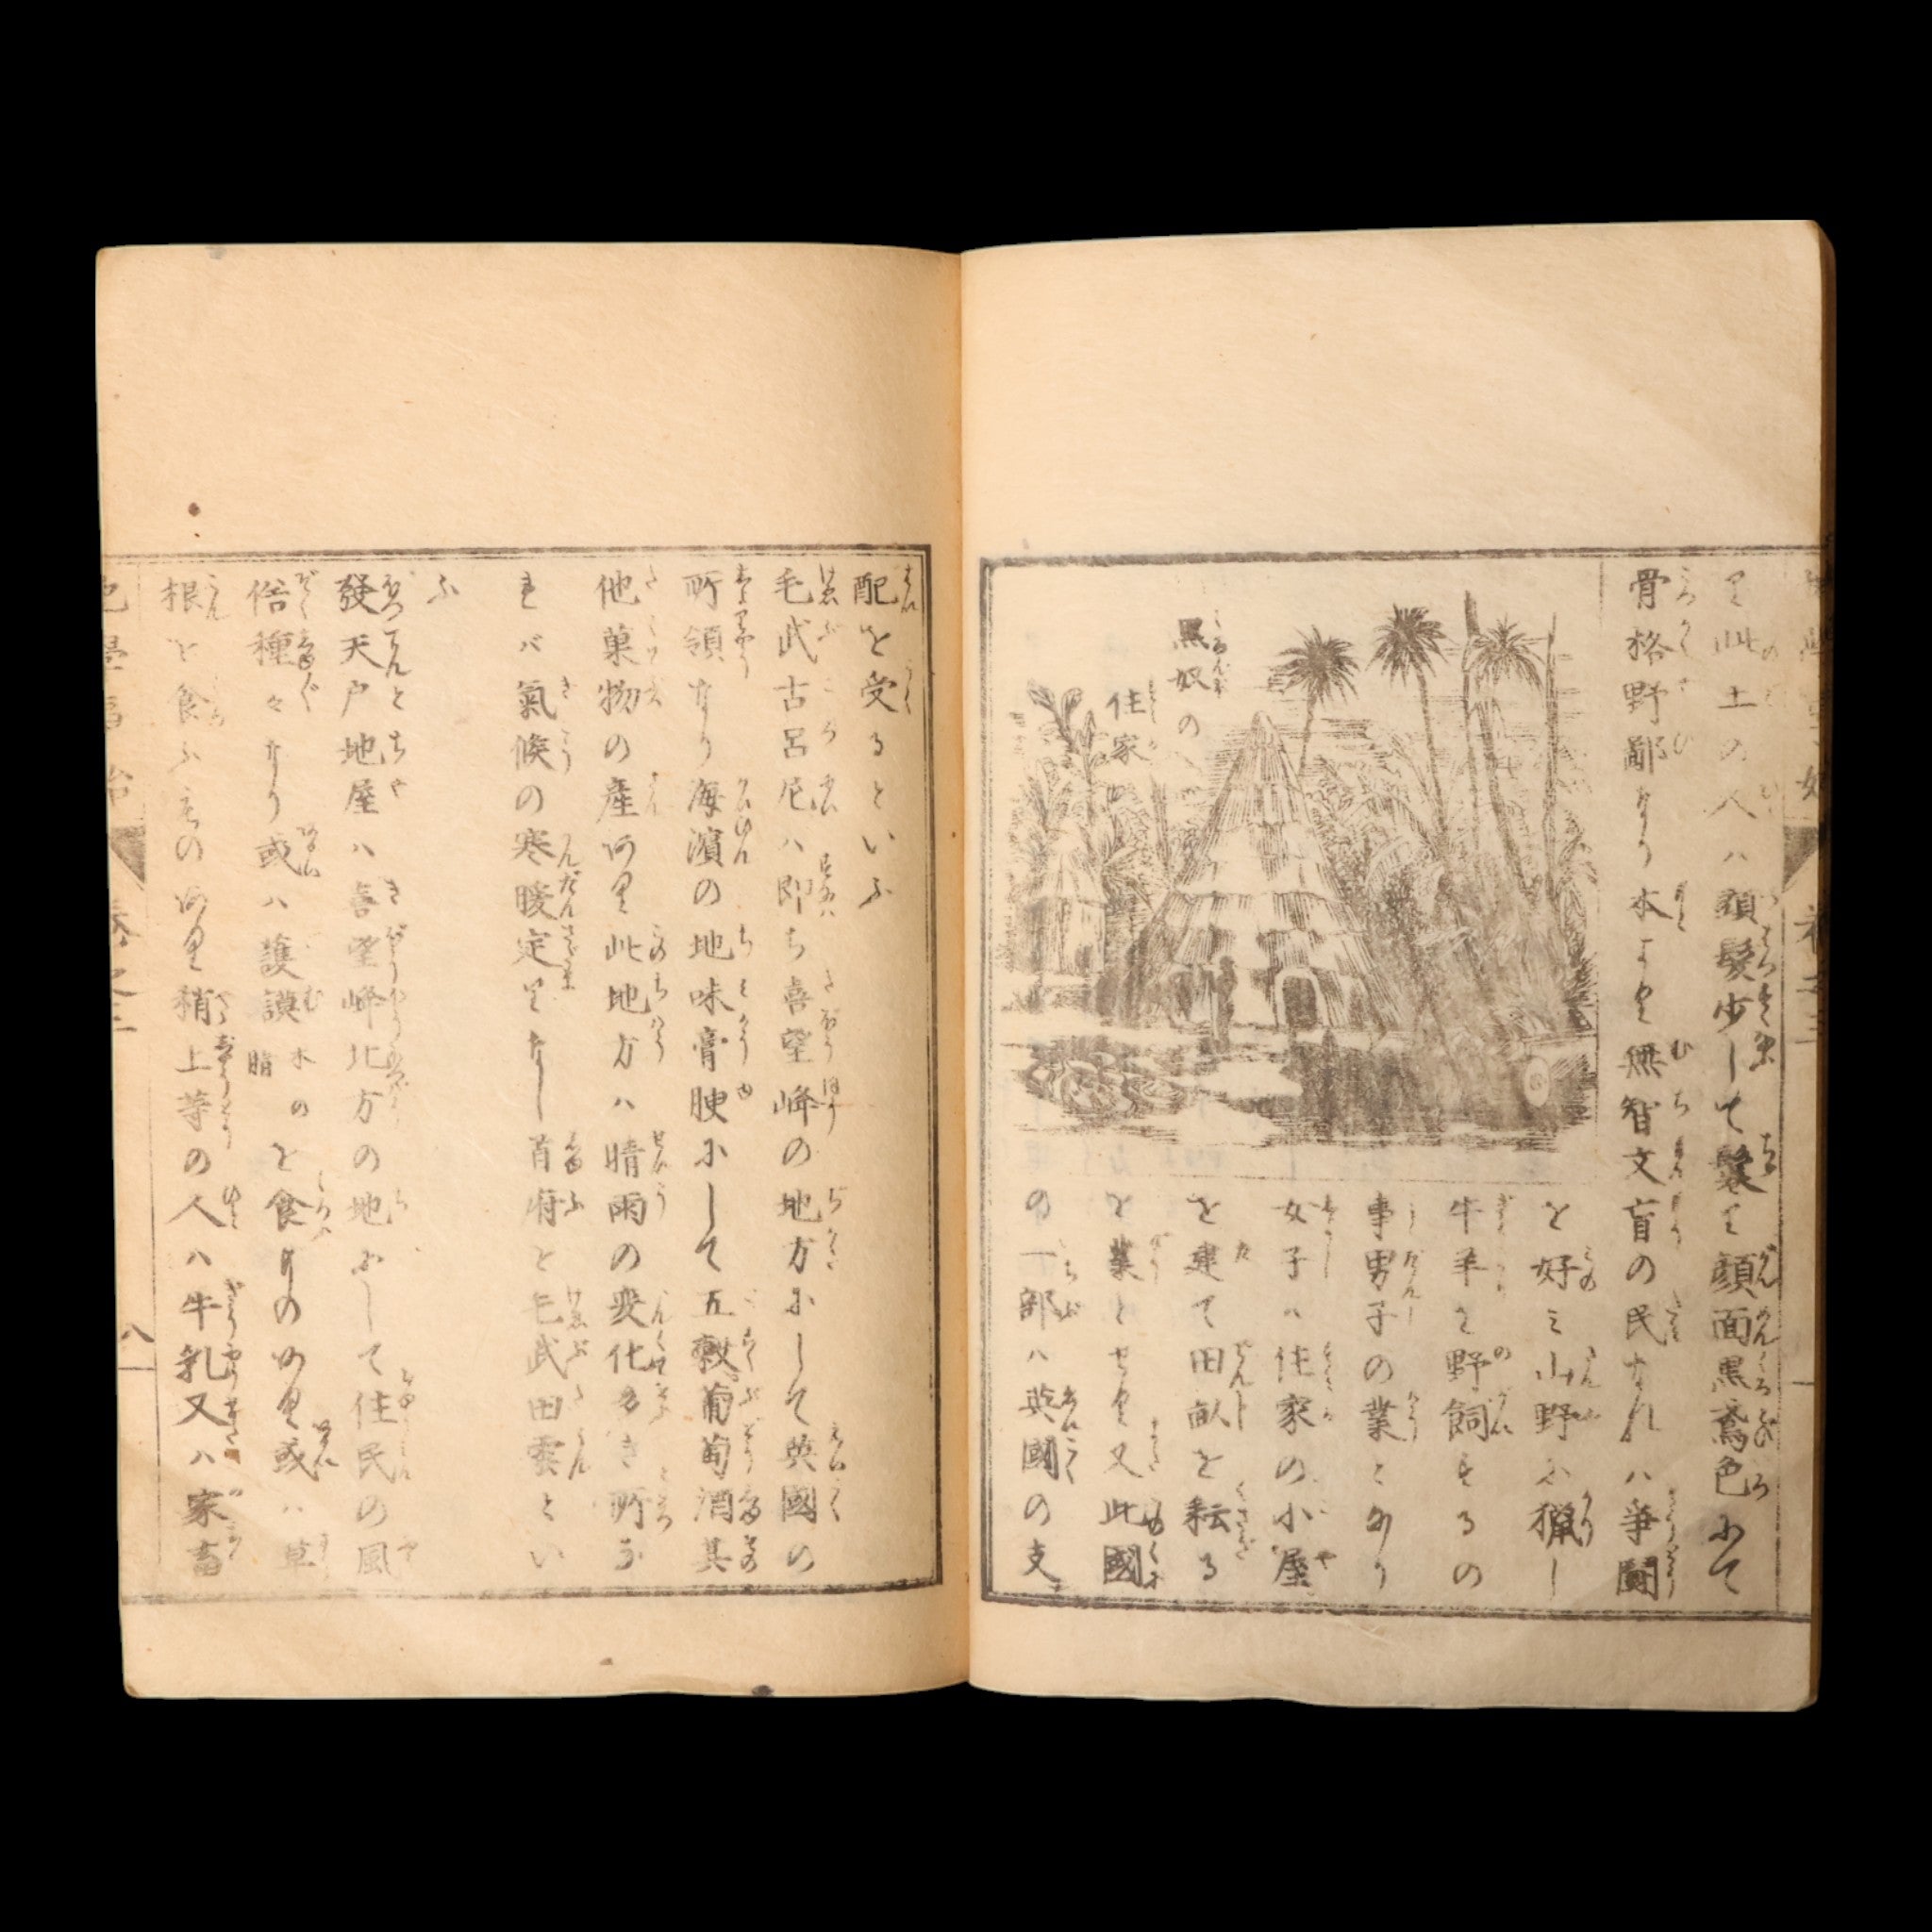 り此土の人ハ頭髮少して鬈り顔面黒鳶色にて
骨格野鄙なり本より無智文盲の民なれハ爭鬪
を好ミ山野ニ猟し
牛羊を野飼するの
事男子の業とあり
女子ハ住家の小屋
を建て田畝を耘る
を業とせり又此國
の一部ハ英國の支
黒奴の
住家
配を受るといふ
毛武古呂尼ハ即ち喜望峰の地方にして英國の
所領なり海濱の地味膏腴にして五穀葡萄酒其
他菓物の産あり此地方ハ晴雨の変化多き所な
れバ氣候の寒暖定りなし首府を毛武田雲とい
ふ
發天戸地屋ハ喜望峰北方の地にして住民の風
俗種々なり或ハ護謨木の脂を食なのあり或ハ草
根を食ふものあり稍上等の人ハ牛乳又ハ家畜
八